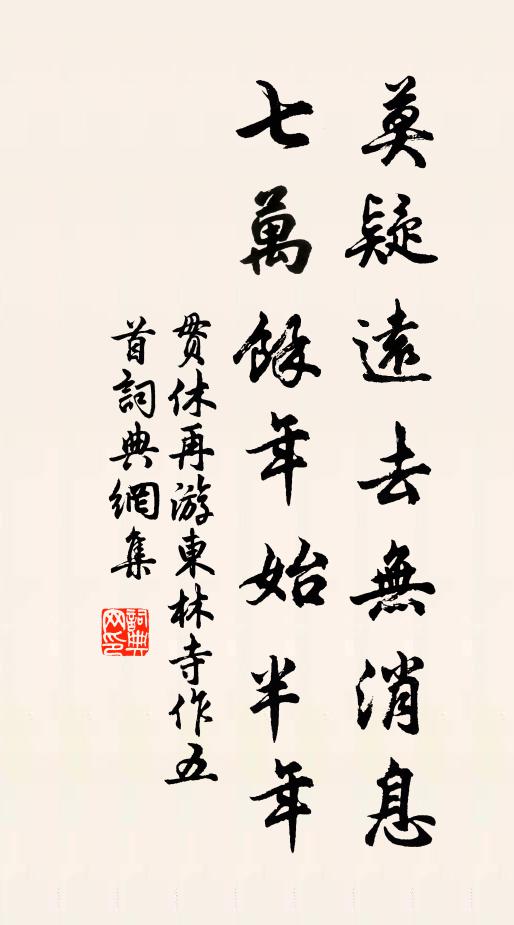 莫疑遠去無消息
七萬餘年始半年
貫休再游東林寺作五
首詞典網集
詞典
网印